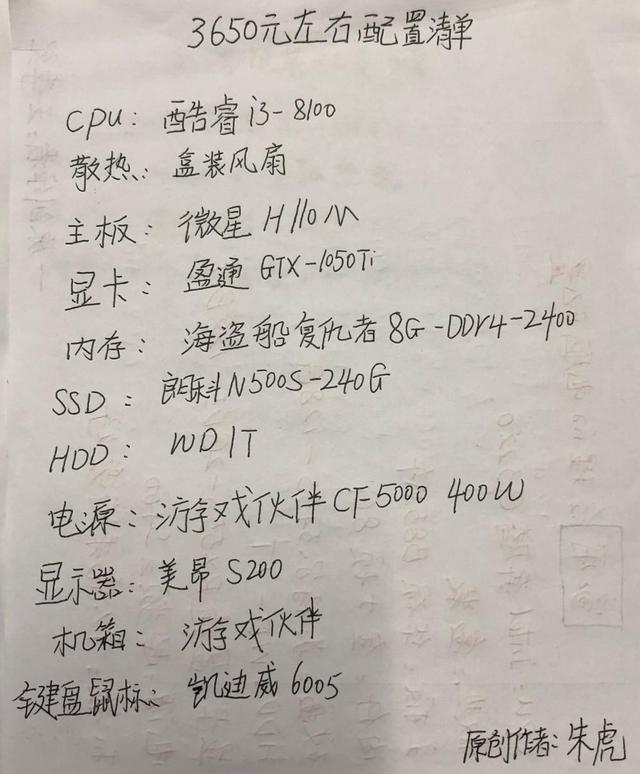 3650元左右配置清单
CPU: 酷睿i3-8100
散热: 盒装风扇
主板: 微星H110M
显卡: 盈通GTX-1050Ti
内存: 海盗船复仇者8G-DDr4-2400
SSD: 朗科N500S-240G
HDD: WD1T
电源: 游戏伙伴CF5000 400W
显示器: 美昂S200
机箱: 游戏伙伴
键盘鼠标: 凯迪威6005
原创作者: 朱虎